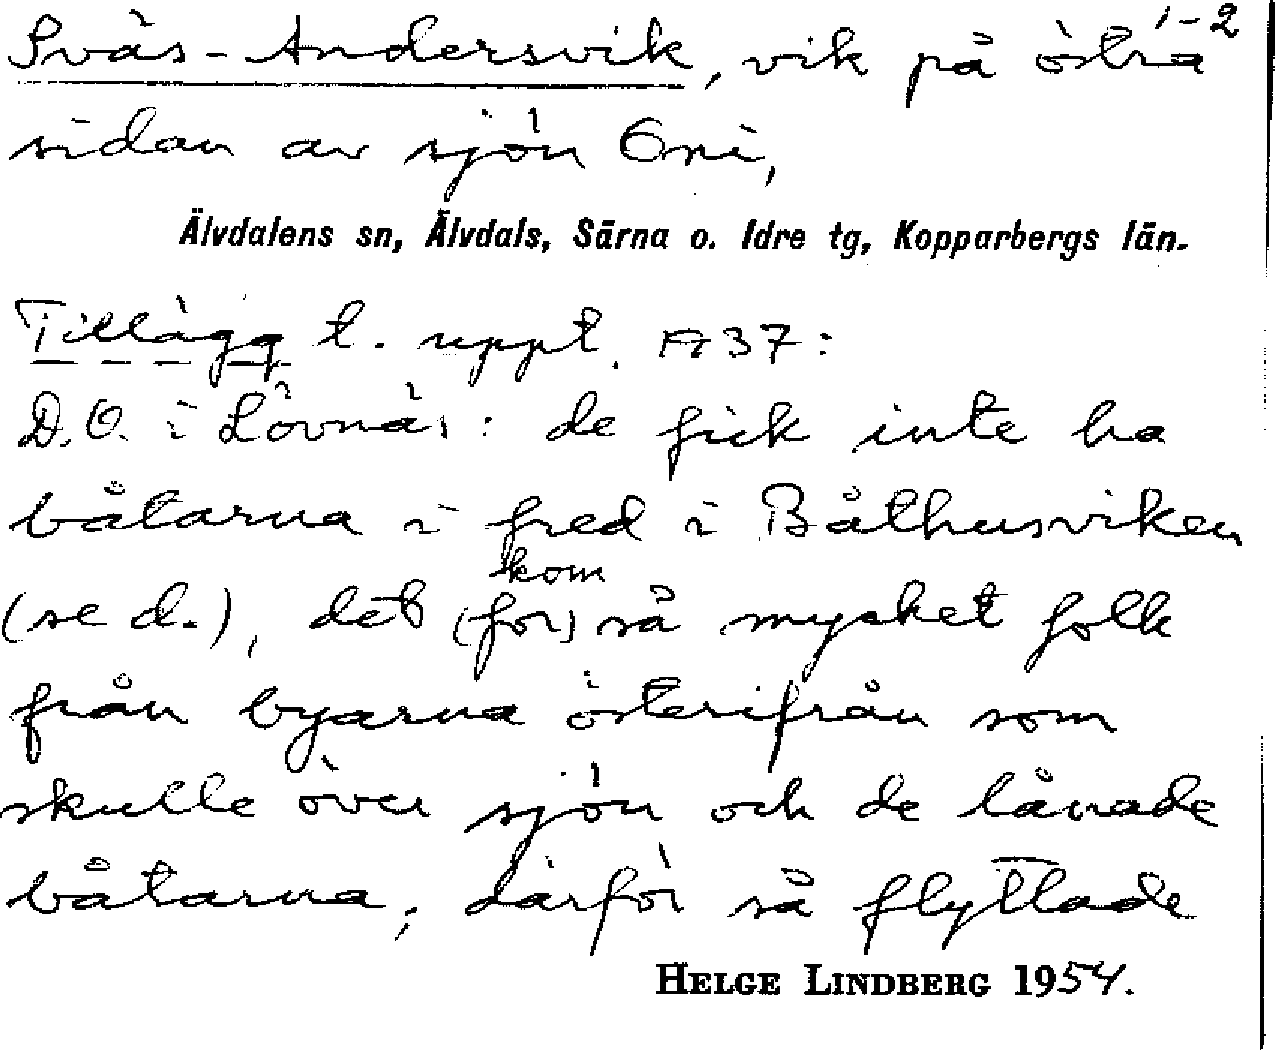 1-2
Sväs-Andersvik, vik på östra
sidan av sjön Osni,
Älvdalens sn, Älvdals, Särna o. Idre tg, Kopparbergs län.
Tillägg t. uppt. 1937:
D.O. i Lövnäs: de fick inte ha
båtarna i fred i Båthusviken
kom
(se d.), det (for) så mycket folk
från byarna österifrån som
skulle över sjön och de lånade
båtarna, därför så flyttade
HELGE LINDBERG 1954.